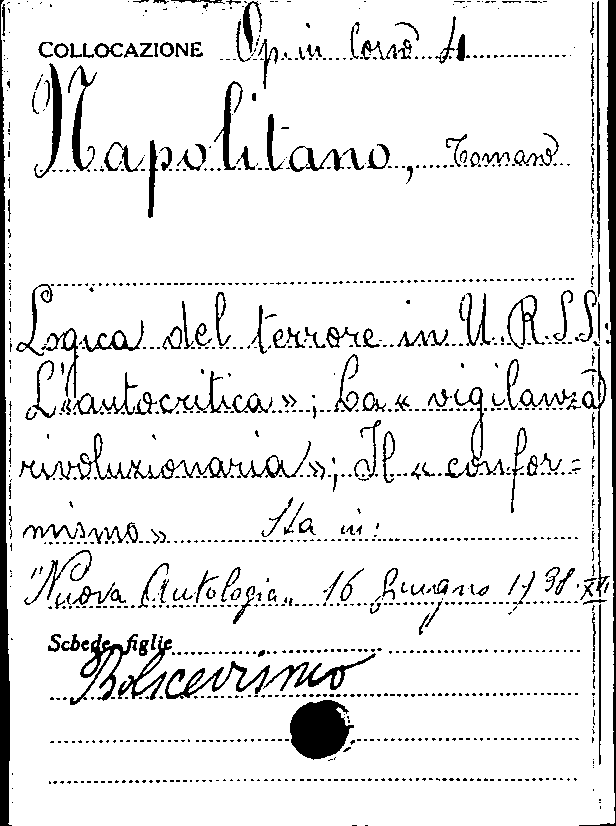 COLLOCAZIONE Op. in Corso 4
Napolitano, Tomaso
Logica del terrore in U.R.S.S.:
L'«autocritica»; La «vigilanza
rivoluzionaria»; Il «confor=
mismo» Sta in:
"Nuova Antologia" 16 Giugno 1938.XVI
Schede figlie
Bolscevismo